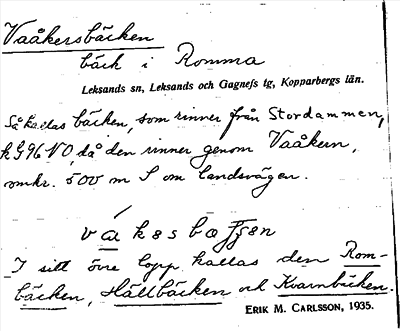 Vaåkersbäcken
bäck i Romma
Leksands sn, Leksands och Gagnefs tg, Kopparbergs län.
Så kallas bäcken, som rinner från Stordammen,
k G 96 NO, då den rinner genom Vaåkern,
omkr. 500 m S om landsvägen.
I sitt övre lopp kallas den Rom-
bäcken, Hållbäcken och Kvarnbäcken.
ERIK M. CARLSSON, 1935.